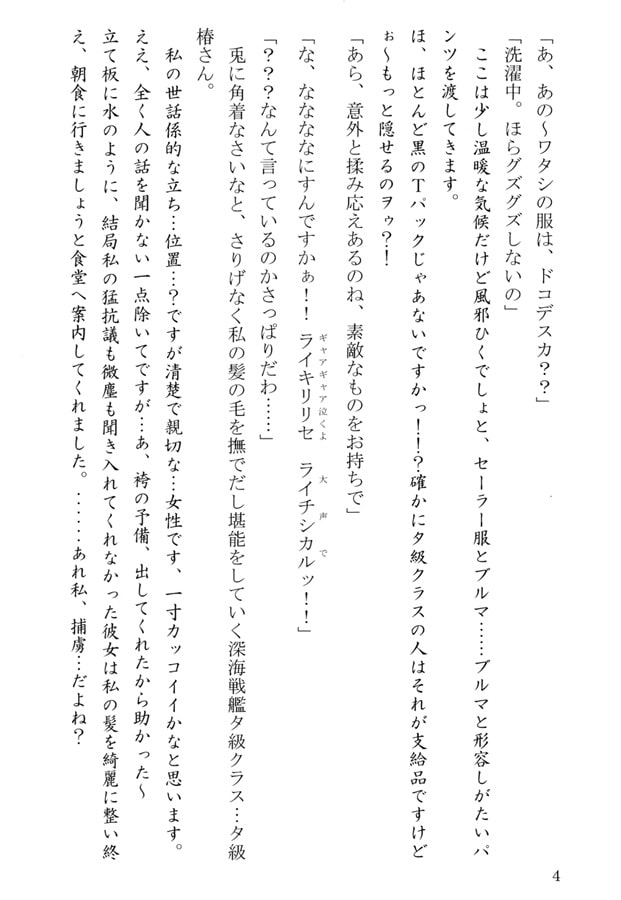 「あ、あの～ワタシの服は、ドコデスカ？？」
「洗濯中。ほらグズグズしないの」
ここは少し温暖な気候だけど風邪ひくでしょと、セーラー服とブルマ……ブルマと形容しがたいパ
ンツを渡してきます。
ほ、ほとんど黒のＴバックじゃあないですかっ！！？確かにタ級クラスの人はそれが支給品ですけど
ぉ～もっと隠せるのヲゥ？！
「あら、意外と揉み応えあるのね、素敵なものをお持ちで」
「な、なななななにすんですかぁ！！ライキリリセ　ライチシカルッ！！」
ギャアギャア泣くよ　大声で
「？？？なんて言っているのかさっぱりだわ……」
兎に角着なさいなと、さりげなく私の髪の毛を撫でだし堪能をしていく深海戦艦タ級クラス…タ級
椿さん。
私の世話係的な立ち…位置…？ですが清楚で親切な…女性です、一寸カッコイイかなと思います。
ええ、全く人の話を聞かない一点除いてですが…あ、袴の予備、出してくれたから助かった～
立て板に水のように、結局私の猛抗議も微塵も聞き入れてくれなかった彼女は私の髪を綺麗に整い終
え、朝食に行きましょうと食堂へ案内してくれました。……あれ私、捕虜…だよね？
4